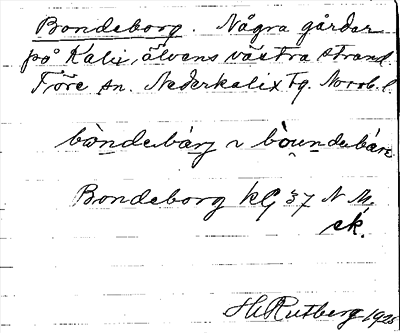 Bondeborg. Några gårdar
på Kalix älvens västra strand.
Töre sn. Nederkalix tg. Norrb. l
bòndebárg ~ bòundebáre
Bondeborg kG 37 N M.
ek.
H Rutberg 1925